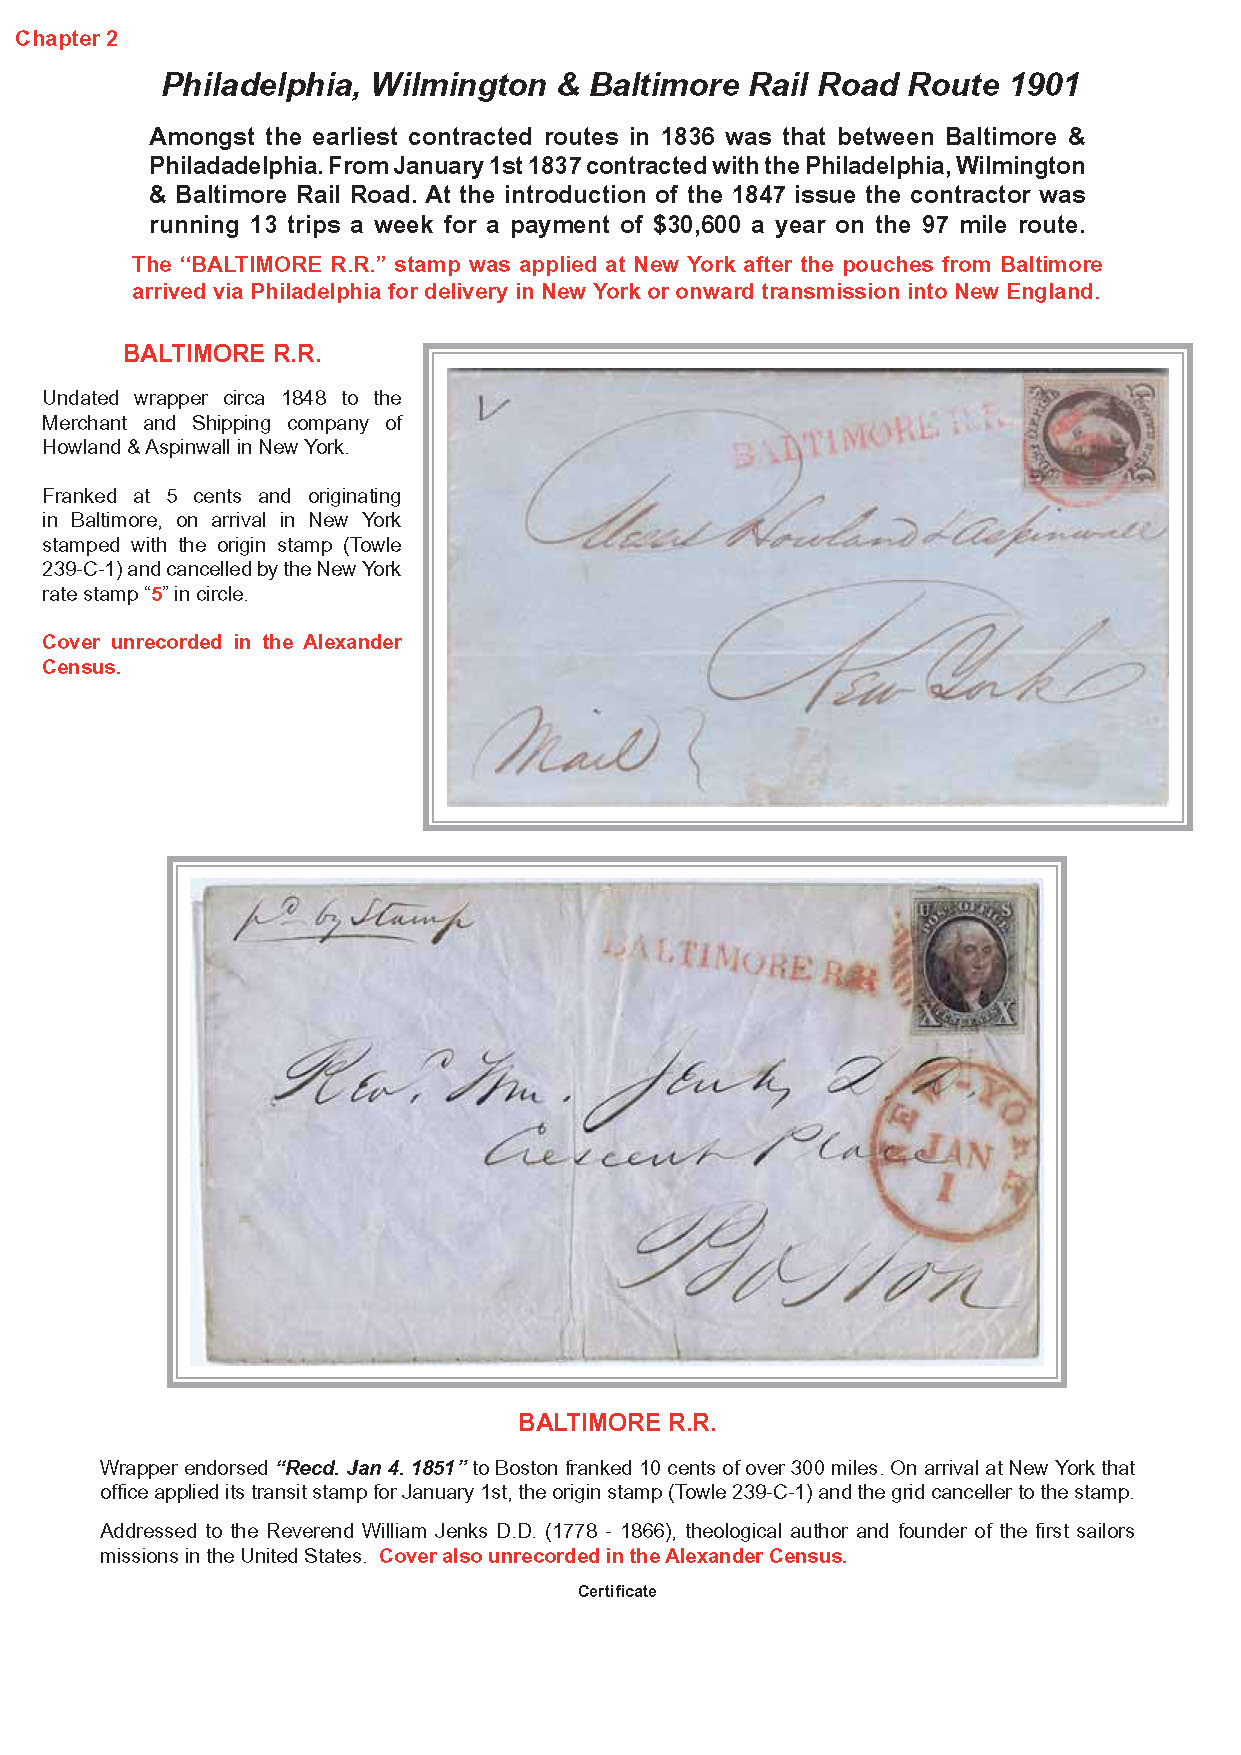 Chapter 2
Philadelphia, Wilmington & Baltimore Rail Road Route 1901
Amongst the earliest contracted routes in 1836 was that between Baltimore &
Philadadelphia. From January 1st 1837 contracted with the Philadelphia, Wilmington
& Baltimore Rail Road. At the introduction of the 1847 issue the contractor was
running 13 trips a week for a payment of $30,600 a year on the 97 mile route.
The “BALTIMORE R.R.” stamp was applied at New York after the pouches from Baltimore
arrived via Philadelphia for delivery in New York or onward transmission into New England.
BALTIMORE R.R.
Undated wrapper circa 1848 to the
Merchant and Shipping company of
Howland & Aspinwall in New York.
Franked at 5 cents and originating
in Baltimore, on arrival in New York
stamped with the origin stamp (Towle
239-C-1) and cancelled by the New York
rate stamp “5” in circle.
Cover unrecorded in the Alexander
Census.
BALTIMORE R.R.
Messrs Howland & Aspinwall
New York
Mail
pd by Stamp
BALTIMORE R.R.
U S
POST OFFICE
X X
Revd. Wm. Jenks D.D.
Crescent Place
Boston
NEW-YORK
JAN
1
BALTIMORE R.R.
Wrapper endorsed “Recd. Jan 4. 1851” to Boston franked 10 cents of over 300 miles. On arrival at New York that
office applied its transit stamp for January 1st, the origin stamp (Towle 239-C-1) and the grid canceller to the stamp.
Addressed to the Reverend William Jenks D.D. (1778 - 1866), theological author and founder of the first sailors
missions in the United States. Cover also unrecorded in the Alexander Census.
Certificate